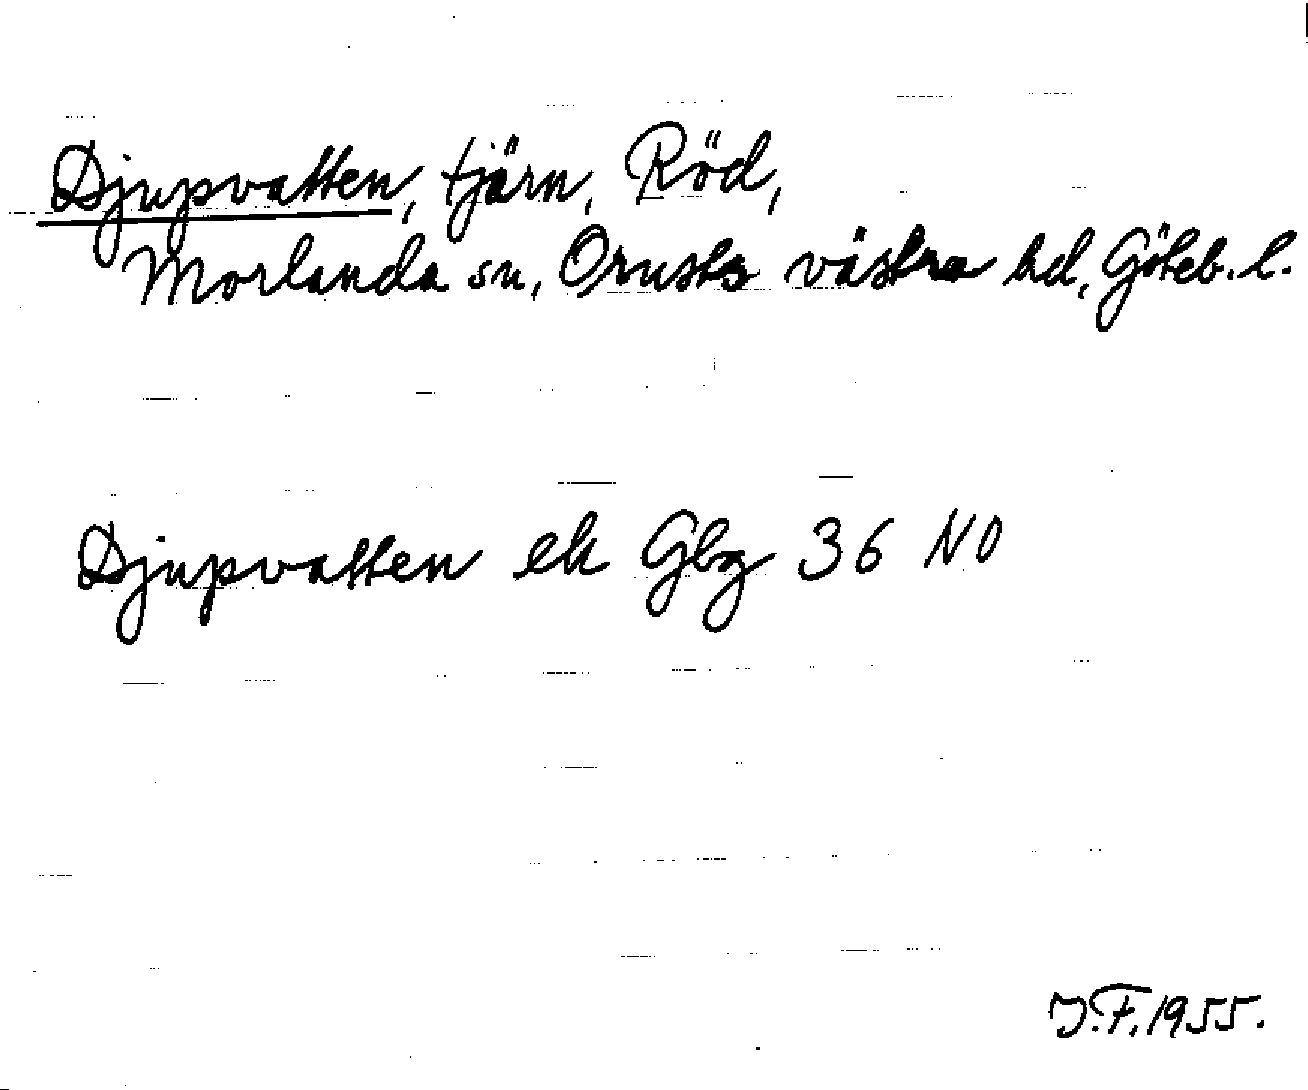 Djupvatten, tjärn, Röd,
Morlanda sn, Orusts västra hd, Göteb. l.
Djupvatten ek Gbg 36 NO
J.F. 1955.